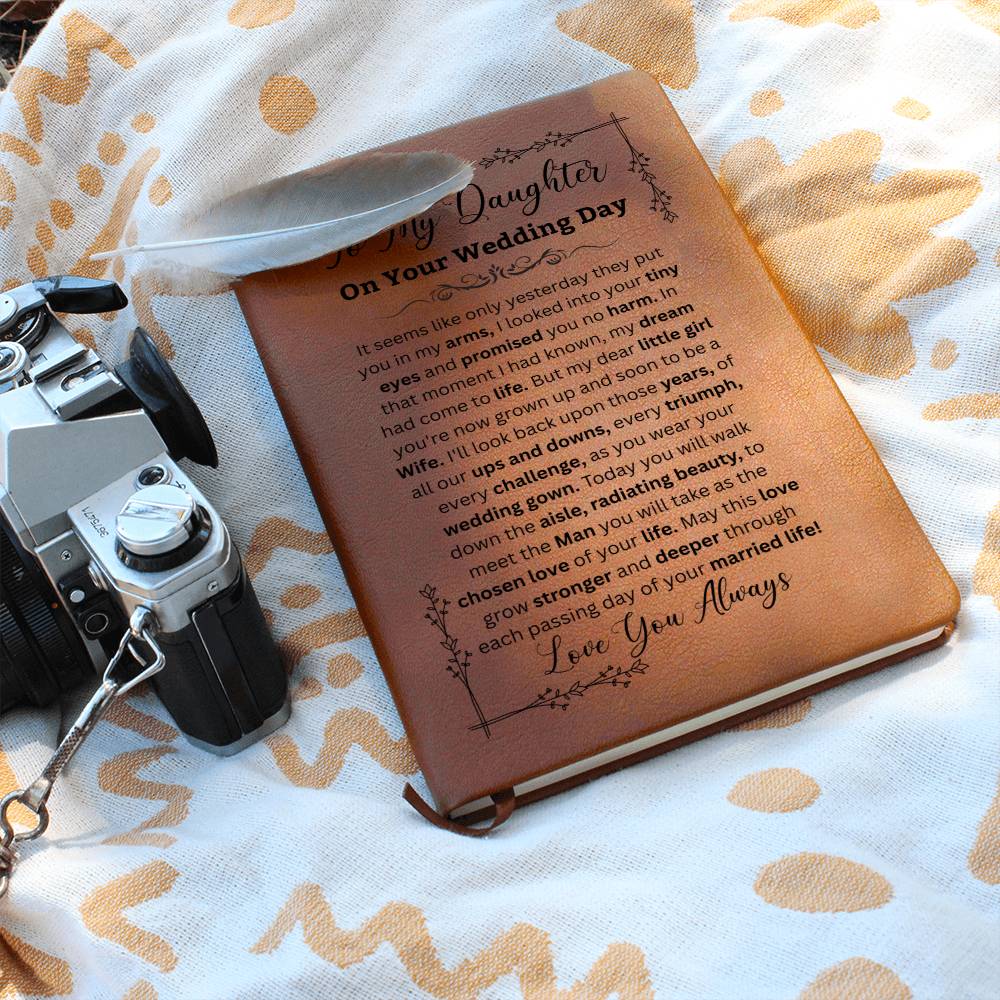 To My Daughter
On Your Wedding Day
It seems like only yesterday they put
you in my arms, I looked into your tiny
eyes and promised you no harm. In
that moment I had known, my dream
had come to life. But my dear little girl
you're now grown up and soon to be a
Wife. I'll look back upon those years, of
all our ups and downs, every triumph,
every challenge, as you wear your
wedding gown. Today you will walk
down the aisle, radiating beauty, to
meet the Man you will take as the
chosen love of your life. May this love
grow stronger and deeper through
each passing day of your married life!
Love You Always
3675471A